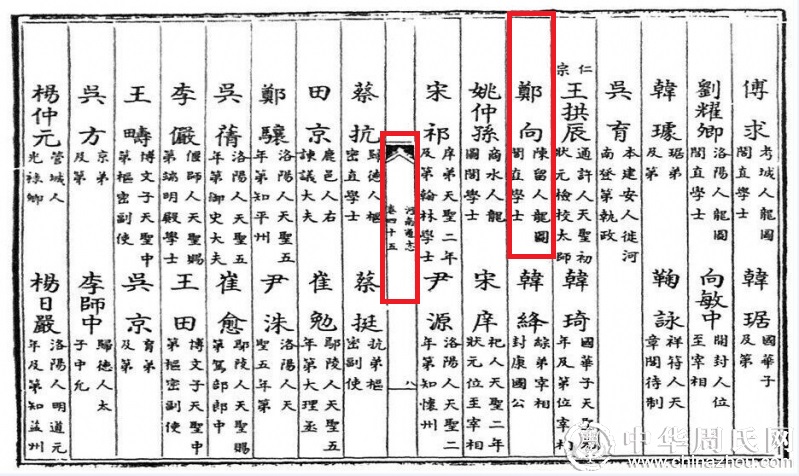 傅求考城人龍圖閣直學士
韓琚國華子及第
劉耀卿洛陽人龍圖閣直學士
向敏中開封人位至宰相
韓璩琚弟及第
鞠詠祥符人天章閣待制
吳育本建安人徙河南登第執政
仁宗
王拱辰通許人天聖初狀元檢校太師
韓琦國華子天聖年及第位宰相
鄭向陳留人龍圖閣直學士
韓絳綜弟宰相封康國公
姚仲孫商水人龍圖閣學士
宋庠杞人天聖二年狀元位至宰相
宋祁庠弟天聖二年及第翰林學士
尹源洛陽人天聖二年第知懷州
河南通志
卷四十五
八
蔡抗歸德人樞密直學士
蔡挺抗弟樞密副使
田京鹿邑人右諫議大夫
崔勉鄢陵人天聖五年第大理丞
鄭驤洛陽人天聖五年第知平州
尹洙洛陽人天聖五年第
吳蒨洛陽人天聖五年第御史大夫
崔愈鄢陵人天聖賜第駕部郎中
李儼偃師人天聖賜第端明殿學士
王田博文子天聖中第樞密副使
王疇博文子天聖中第樞密副使
吳京育弟及第
吳方京弟及第
李師中歸德人太子中允
楊仲元管城人光祿卿
楊日嚴洛陽人明道元年及第知益州
中华周氏网
www.chinazhou.com